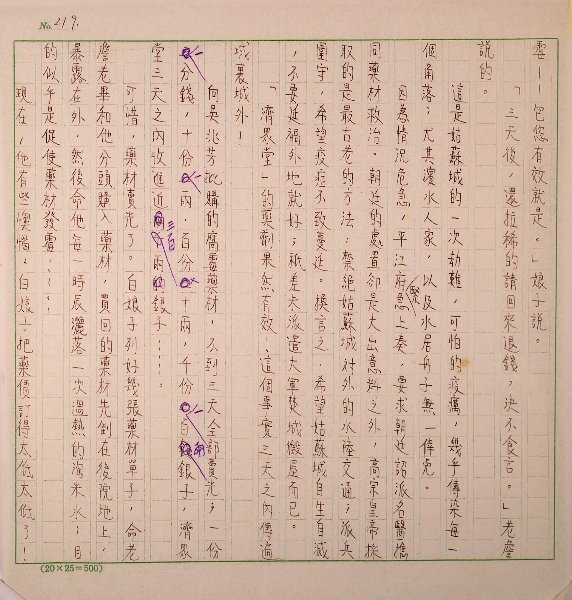 No. 219.
雲!包您有效就是。」娘子說。
「三天後,還拉稀的請回來退錢,決不食言。」老詹
說的。
這是姑蘇城的一次劫難,可怕的疫癘,幾乎傳染每一
個角落;尤其濱水人家,以及水居舟子無一倖免。
因為情況危急,平江府緊急上奏,要求朝廷詔派名醫攜
同藥材救治。朝廷的處置卻是大出意料之外,高宗皇帝採
取的是最古老的方法:禁絕姑蘇城對外的水陸交通;派兵
圍守,希望疫症不致蔓延。換言之,希望姑蘇城自生自滅
,不要延禍外地就好;祇差太派遣大軍焚城搬屋而已。
「濟眾堂」的藥劑果然有效,這個事實三天之內傳遍
城裏城外!
向吳兆芳批購的腐霉藥材,不到三天全部賣光;一份
一分錢,十份一兩,百份十兩,千份一百兩銀子,濟眾
堂三天之內收進近三百兩的銀子……。
可惜,藥材賣光了。白娘子列好幾張藥材單子,命老
詹老畢和他分頭購入藥材,買回的藥材先倒在後院地上,
暴露在外,然後命他每一時辰灑落一次溫熱的淘米水;目
的似乎是促使藥材發霉……。
現在,他有些懊惱,白娘子把藥價訂得太低太低了!
(20×25=500)